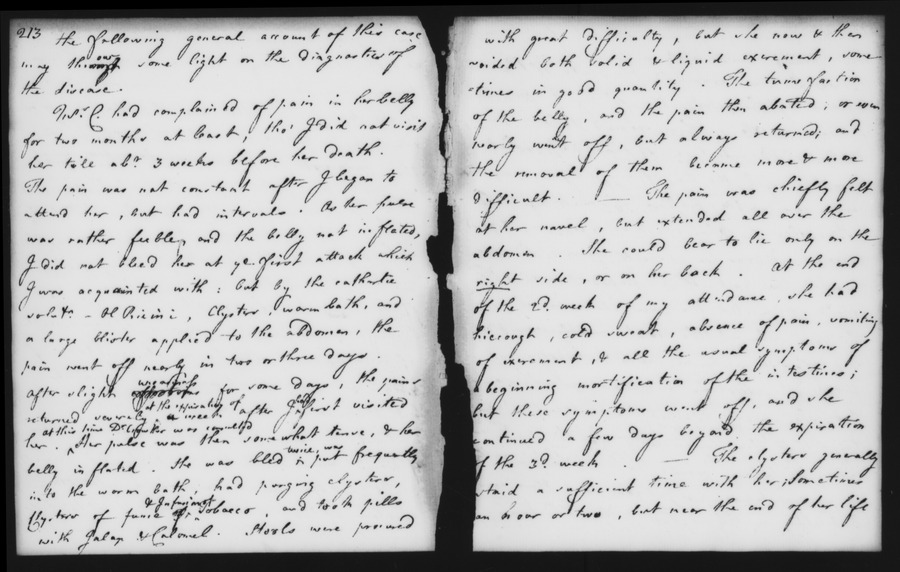 213
the following general account of this case
may throw some light on the diagnostics of
the disease.
Mrs. C. had complained of pain in her belly
for two months at least, tho' I did not visit
her till abt. 3 weeks before her death.
The pain was not constant after I began to
attend her, but had intervals. As her pulse
was rather feeble, and the belly not inflated,
I did not bleed her at ye. first attack which
I was acquainted with: but by the cathartic
salts - Ol Ricini, Clysters, warm bath, and
a large blister applied to the abdomen, the
pain went off nearly in two or three days.
after slight uneasiness for some days, the pains
returned severely at the expiration of a week after I had first visited
her. at this time Dr. was consulted
Her pulse was then somewhat tense, & her
belly inflated. She was bled twice, was put frequently
into the warm bath, had purging clysters,
Clysters of fume & infusion of Tobacco, and took pills
with Jalap & Calomel. Stools were procured
with great difficulty, but she now & then
voided both solid & liquid excrement, some
=times in good quantity. The tumefaction
of the belly, and the pain then abated; or even
nearly went off, but always returned; and
the removal of them became more & more
difficult. — The pain was chiefly felt
at her navel, but extended all over the
abdomen. She could bear to lie only on the
right side, or on her back. At the end
of the 2d. week of my attendance she had
hiccough, cold sweat, absence of pain, vomiting
of excrement, & all the usual symptoms of
beginning mortification of the intestines;
but these symptoms went off, and she
continued a few days beyond the expiration
of the 3d. week. — The clysters generally
staid a sufficient time with her; sometimes
an hour or two, but near the end of her life